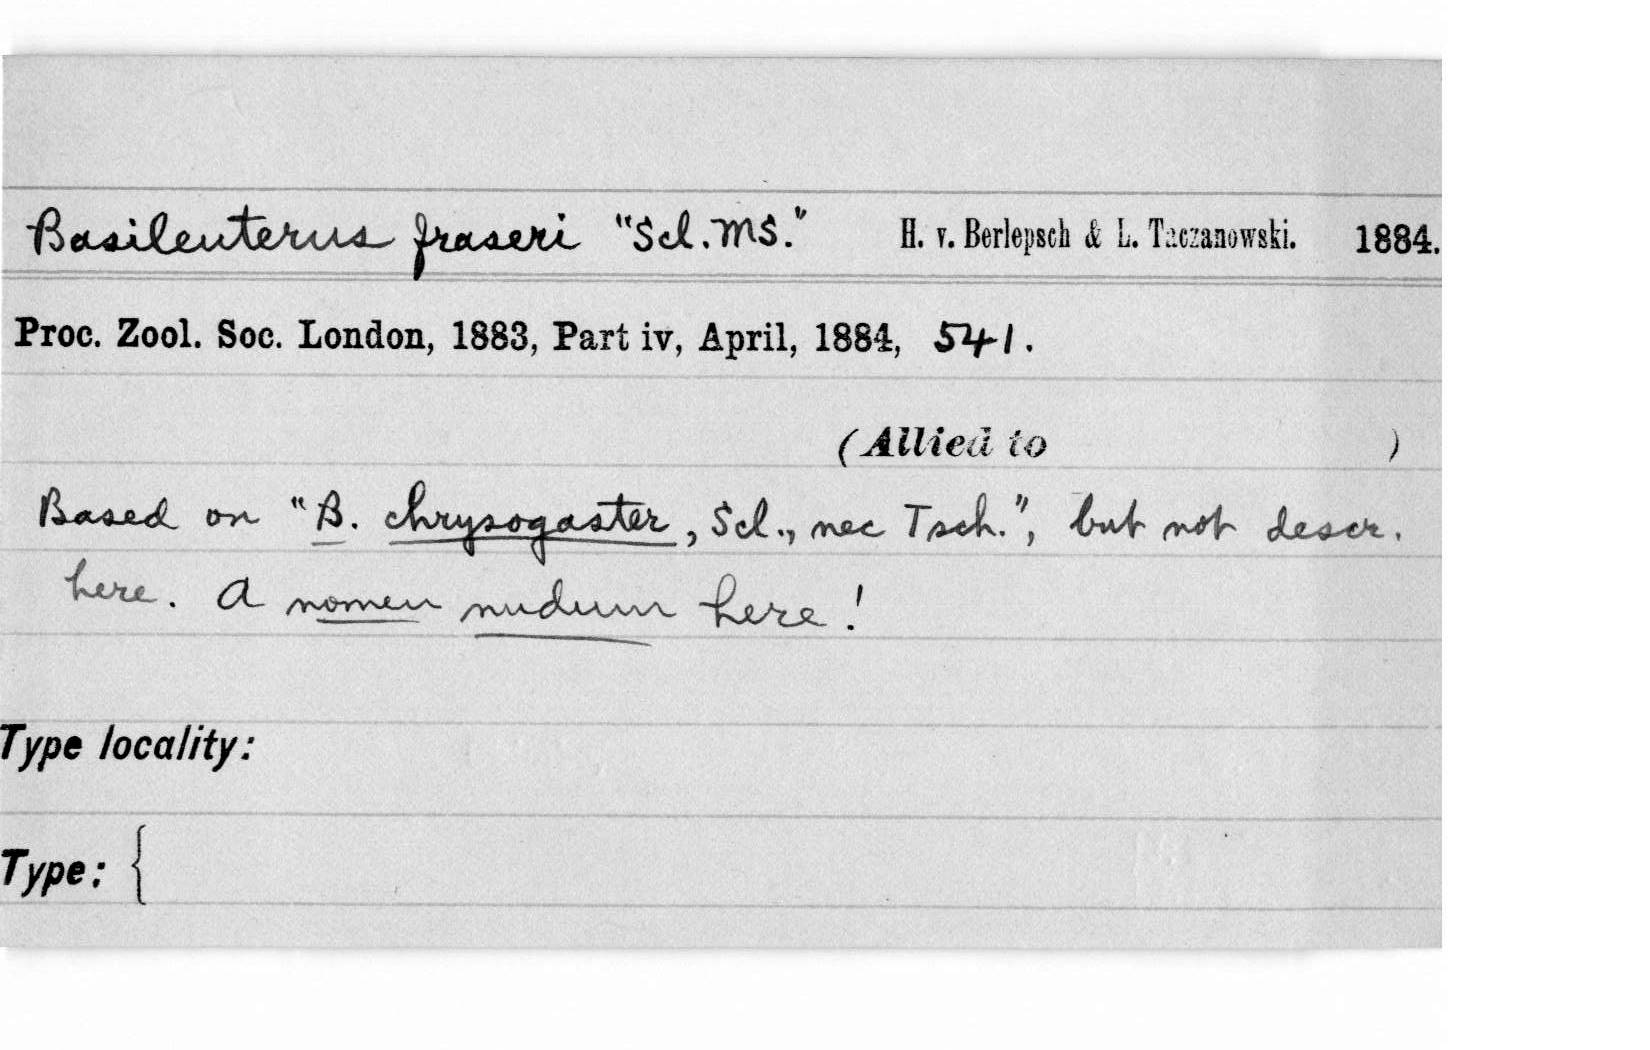 Basileuterus fraseri "Scl. MS." H. v. Berlepsch & L. Taczanowski. 1884.
Proc. Zool. Soc. London, 1883, Part iv, April, 1884, 541.
(Allied to )
Based on "B. chrysogaster, Scl., nec Tsch.", but not descr.
here. A nomen nudum here!
Type locality:
Type: {